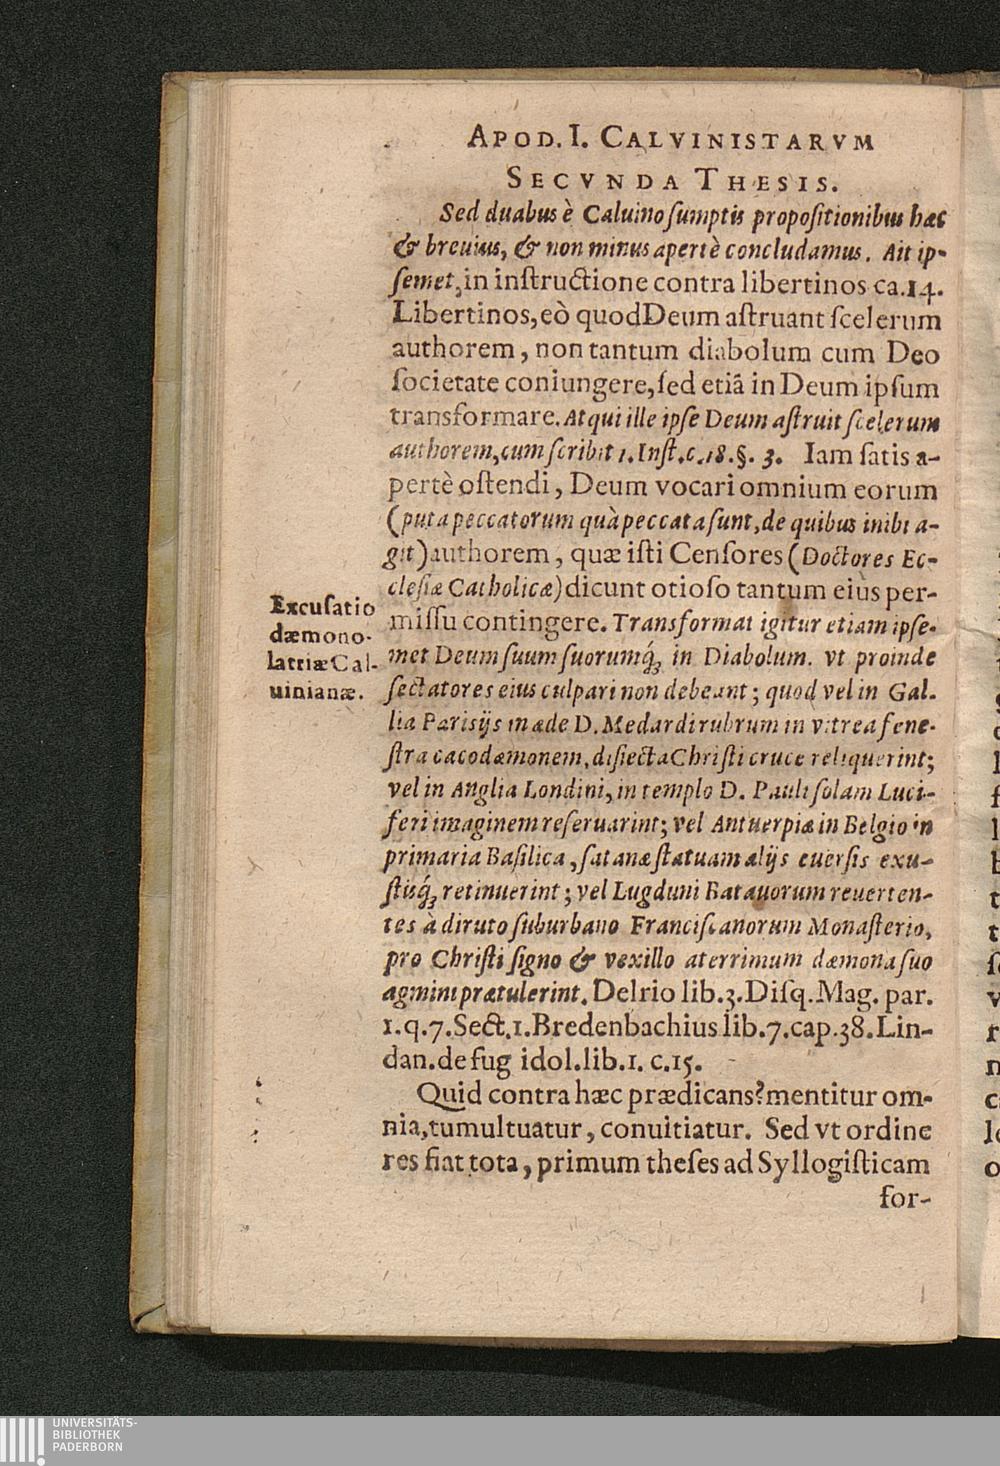 APOD. I. CALVINISTARVM
SECVNDA THESIS.
Sed duabus è Caluino ſumptis propoſitionibus hæc
& breuius, & non minus apertè concludamus. Ait ip-
ſemet, in inſtructione contra libertinos ca. 14.
Libertinos, eò quod Deum aſtruant ſcelerum
authorem, non tantum diabolum cum Deo
ſocietate coniungere, ſed etiã in Deum ipſum
transformare. Atqui ille ipſe Deum aſtruit ſcelerum
authorem, cum ſcribit 1. Inſt. c. 18. §. 3. Iam ſatis a-
pertè oſtendi, Deum vocari omnium eorum
(puta peccatorum quà peccata ſunt, de quibus inibi a-
git) authorem, quæ iſti Cenſores (Doctores Ec-
cleſiæ Catholicæ) dicunt otioſo tantum eiùs per-
miſſu contingere. Transformat igitur etiam ipſe-
met Deum ſuum ſuorumq́; in Diabolum. vt proinde
ſectatores eius culpari non debeant; quod vel in Gal-
lia Pariſijs in æde D. Medardi rubrum in vitrea fene-
ſtra cacodæmonem, diſiecta Chriſti cruce reliquerint;
vel in Anglia Londini, in templo D. Pauli ſolam Luci-
feri imaginem reſeruarint; vel Antuerpiæ in Belgio in
primaria Baſilica, ſatanæ ſtatuam alijs euerſis exu-
ſtisq́; retinuerint; vel Lugduni Batauorum reuerten-
tes à diruto ſuburbano Franciſcanorum Monaſterio,
pro Chriſti ſigno & vexillo aterrimum dæmona ſuo
agmini prætulerint. Delrio lib. 3. Diſq. Mag. par.
1. q. 7. Sect. 1. Bredenbachius lib. 7. cap. 38. Lin-
dan. de fug idol. lib. 1. c. 15.
Quid contra hæc prædicans? mentitur om-
nia, tumultuatur, conuitiatur. Sed vt ordine
res fiat tota, primum theſes ad Syllogiſticam
for-
Excuſatio
dæmono-
latriæ Cal-
uinianæ.
UNIVERSITÄTS-
BIBLIOTHEK
PADERBORN